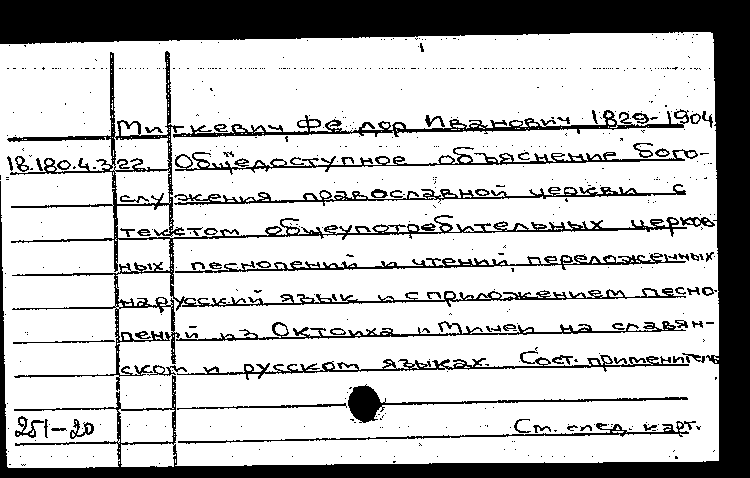 Миткевич, Федор Иванович, 1829-1904
18.180.4.322. Общедоступное объяснение бого-
служения православной церкви с
текстом общеупотребительных церков-
ных песнопений и чтений, переложенных
на русский язык и с приложением песно-
пений из Октоиха и Минеи на славян-
ском и русском языках. Сост. применитель
251-20
См. след. карт.